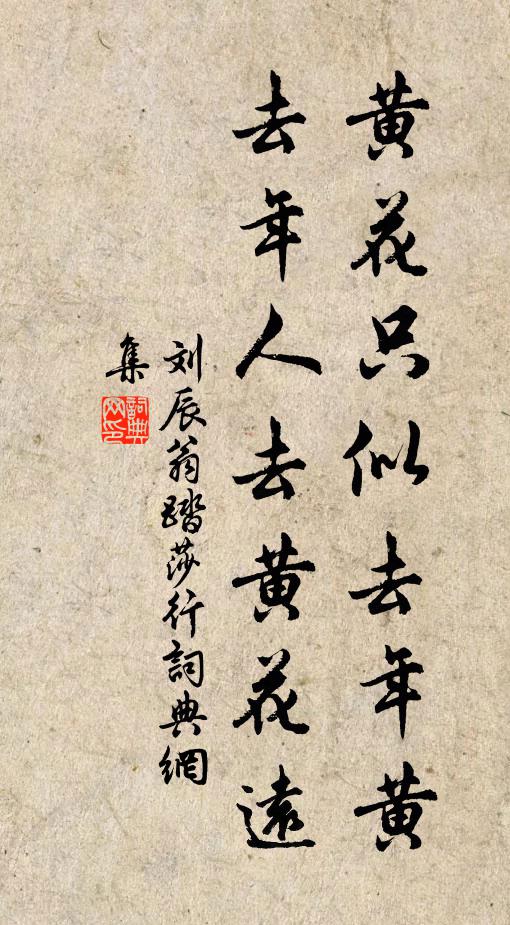 黄花只似去年黄
去年人去黄花遠
刘辰翁踏莎行詞典網
集
詞典网印